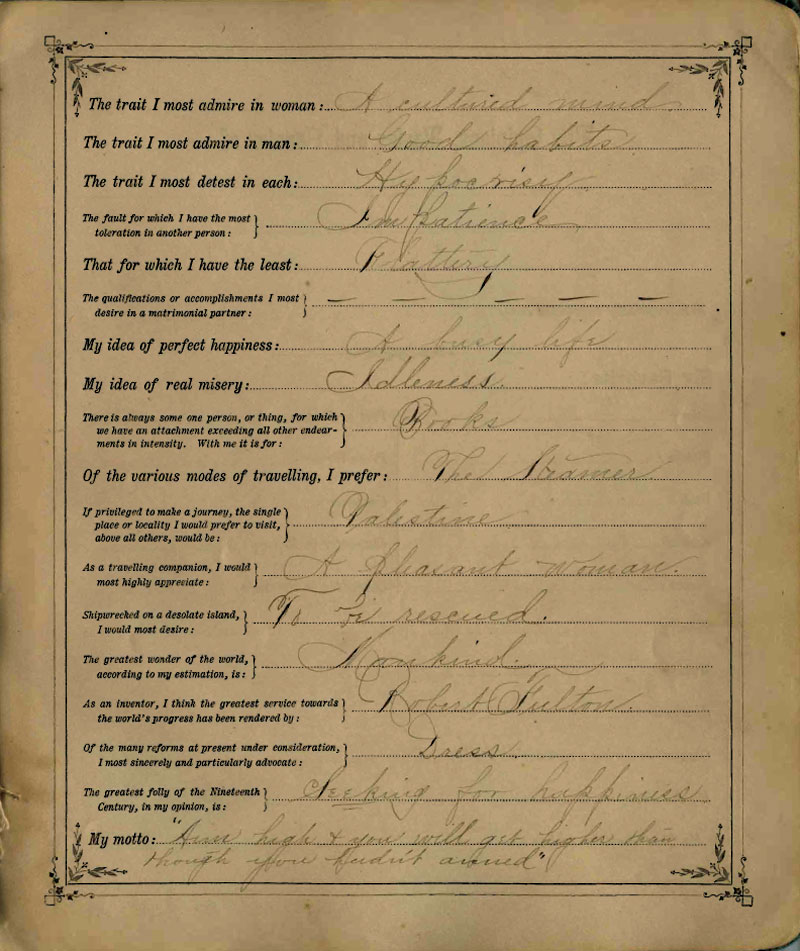 The trait I most admire in woman: A cultured mind.
The trait I most admire in man: Good habits
The trait I most detest in each: Hypocrisy
The fault for which I have the most
toleration in another person: Impatience
That for which I have the least: Flattery
The qualifications or accomplishments I most
desire in a matrimonial partner: — — — — —
My idea of perfect happiness: A busy life
My idea of real misery: Idleness.
There is always some one person, or thing, for which
we have an attachment exceeding all other endear-
ments in intensity. With me it is for: Books
Of the various modes of travelling, I prefer: The Steamer
If privileged to make a journey, the single
place or locality I would prefer to visit,
above all others, would be: Palestine
As a travelling companion, I would
most highly appreciate: A pleasant woman.
Shipwrecked on a desolate island,
I would most desire: To be rescued.
The greatest wonder of the world,
according to my estimation, is: Mankind.
As an inventor, I think the greatest service towards
the world's progress has been rendered by: Robert Fulton.
Of the many reforms at present under consideration,
I most sincerely and particularly advocate: Dress.
The greatest folly of the Nineteenth
Century, in my opinion, is: Seeking for happiness
My motto: "Aim high & you will get higher than
though you hadn't aimed"